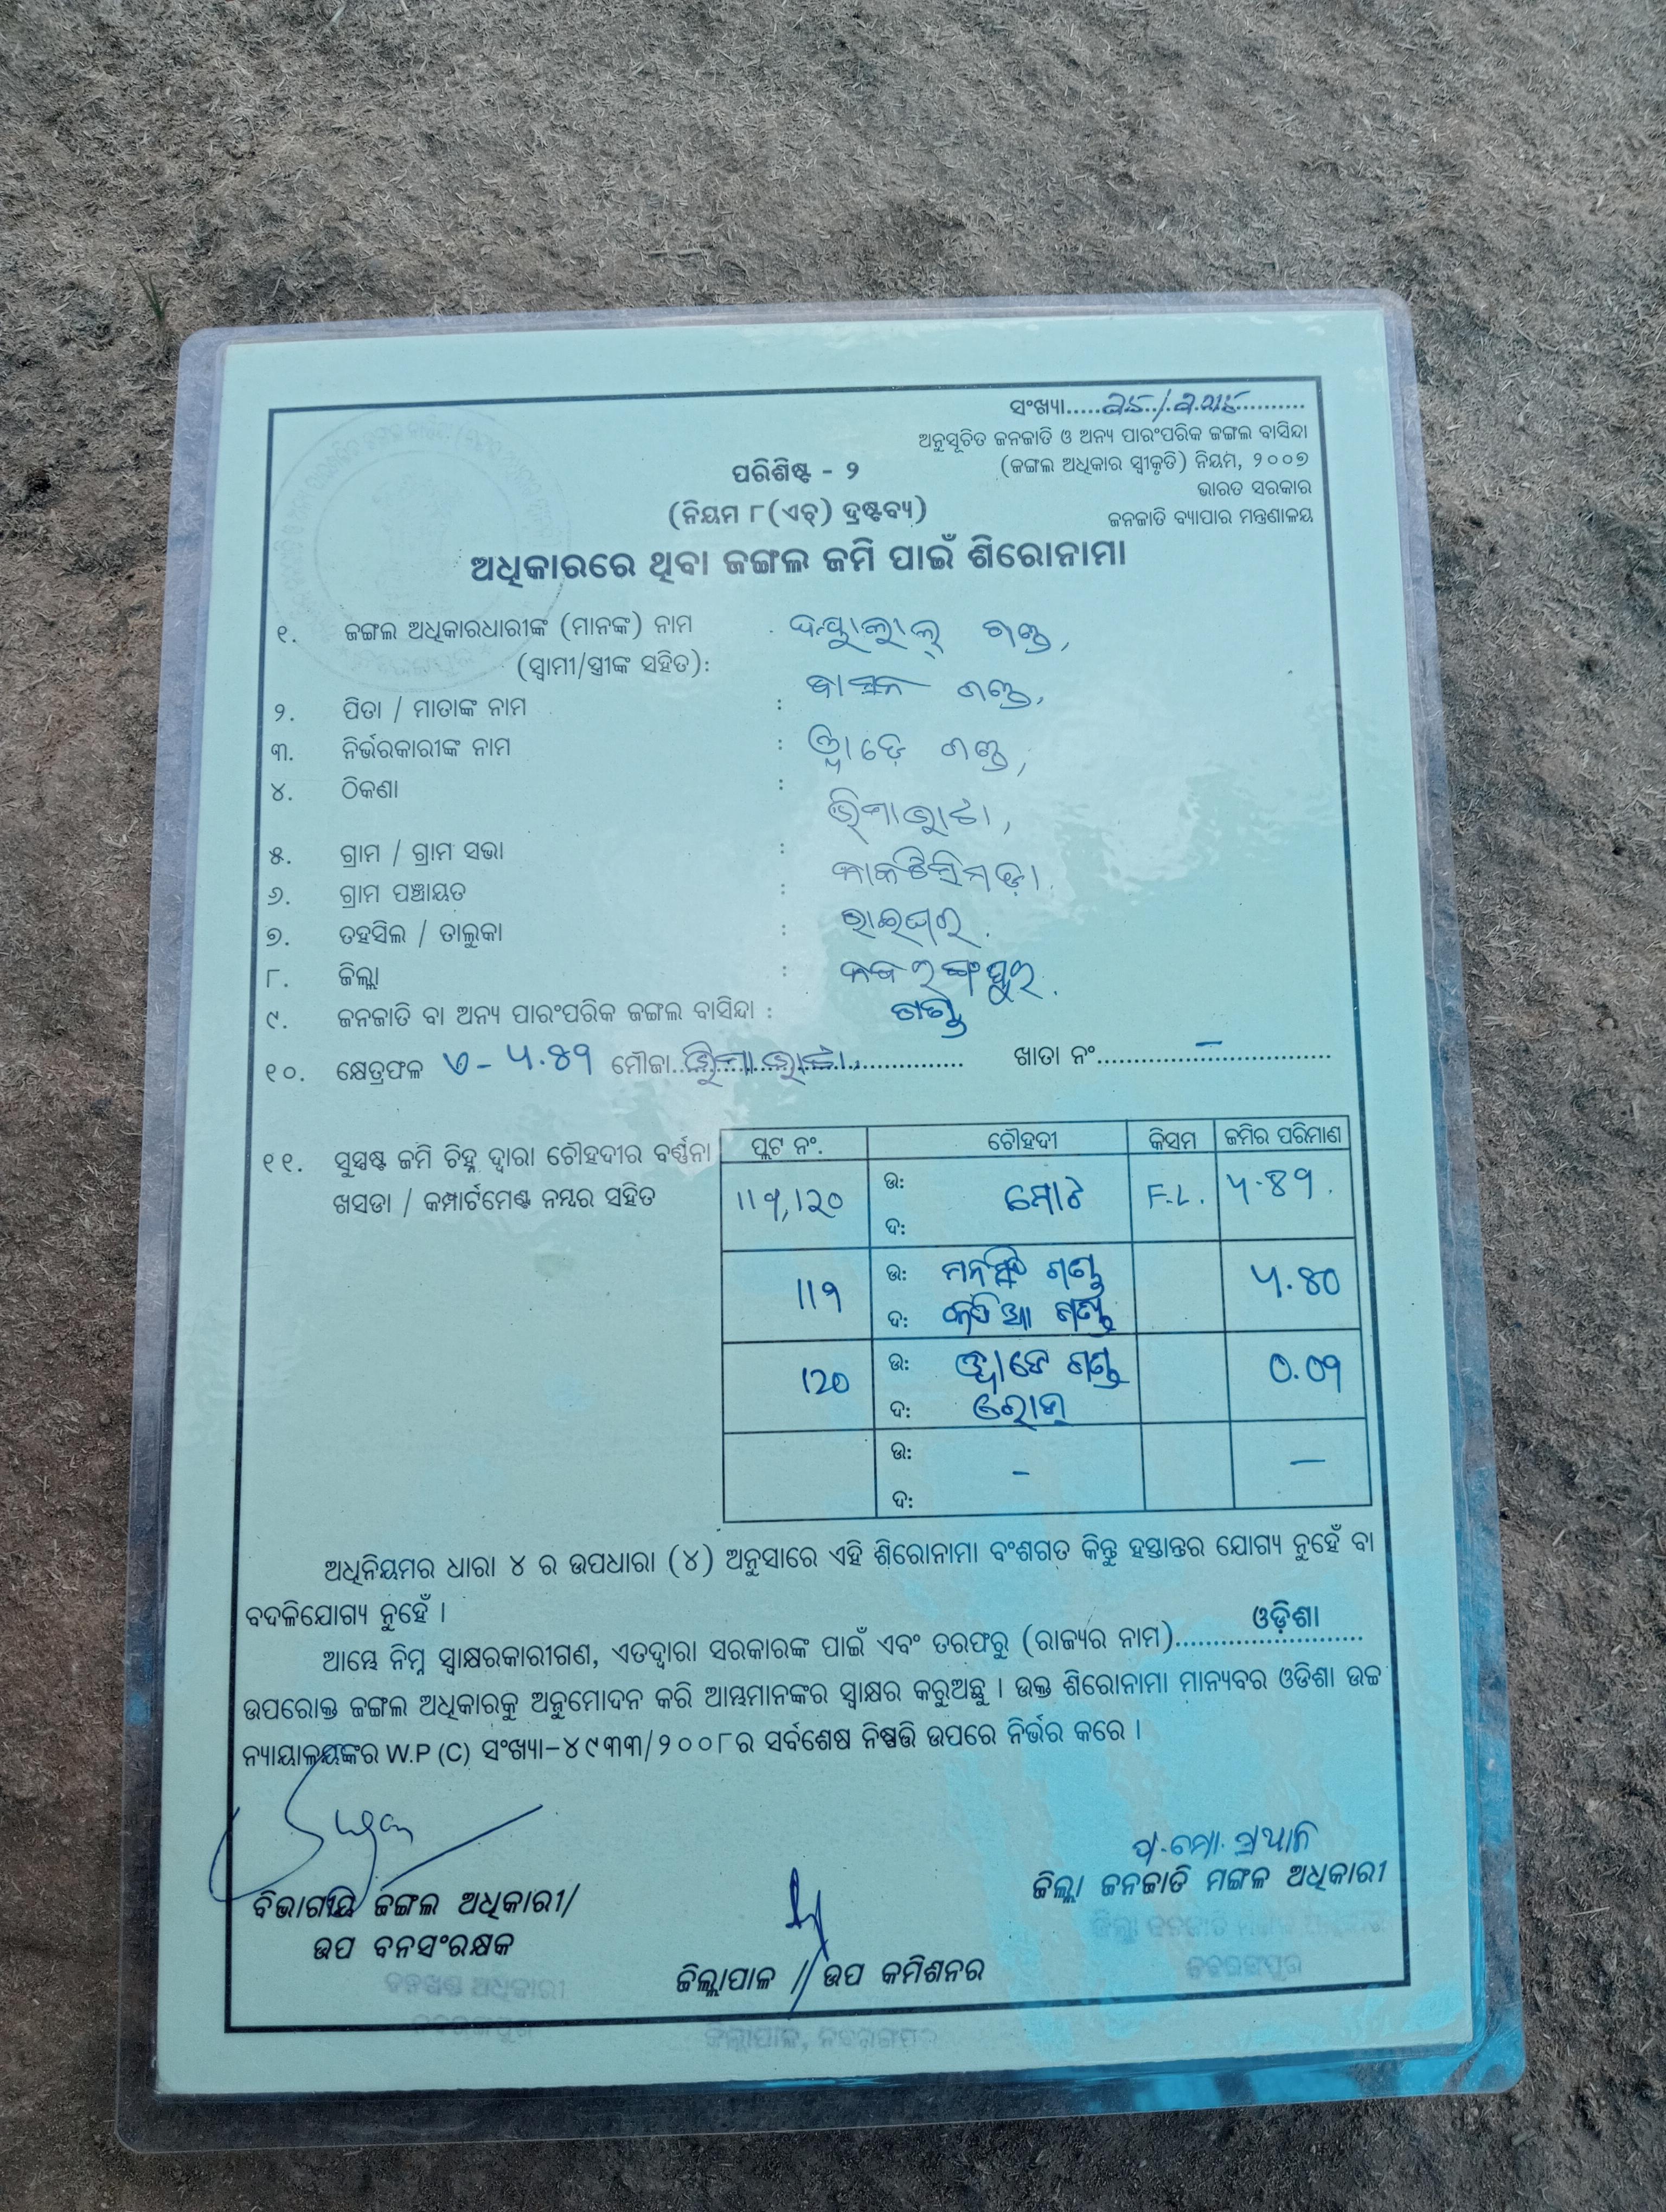 ସଂଖ୍ୟା
ଅନୁସୂଚିତ ଜନଜାତି ଓ ଅନ୍ୟ ପାରଂପରିକ ଜଙ୍ଗଲ ବାସିନ୍ଦା
(ଜଙ୍ଗଲ ଅଧିକାର ସ୍ୱୀକୃତି) ନିୟମ, ୨୦୦୭
ଭାରତ ସରକାର
ଜନଜାତି ବ୍ୟାପାର ମନ୍ତ୍ରଣାଳୟ
ପରିଶିଷ୍ଟ - ୨
(ନିୟମ ୮(ଏଚ୍) ଦ୍ରଷ୍ଟବ୍ୟ)
ଅଧିକାରରେ ଥିବା ଜଙ୍ଗଲ ଜମି ପାଇଁ ଶିରୋନାମା
୧. ଜଙ୍ଗଲ ଅଧିକାରଧାରୀଙ୍କ (ମାନଙ୍କ) ନାମ ଗଣ୍ଡ,
(ସ୍ୱାମୀ/ସ୍ତ୍ରୀଙ୍କ ସହିତ):
୨. ପିତା / ମାତାଙ୍କ ନାମ : ଗଣ୍ଡ,
୩. ନିର୍ଭରକାରୀଙ୍କ ନାମ : ଗଣ୍ଡ,
୪. ଠିକଣା :
୫. ଗ୍ରାମ / ଗ୍ରାମ ସଭା :
୬. ଗ୍ରାମ ପଞ୍ଚାୟତ :
୭. ତହସିଲ / ତାଲୁକା : ରାଇଘର.
୮. ଜିଲ୍ଲା : ନବରଙ୍ଗପୁର.
୯. ଜନଜାତି ବା ଅନ୍ୟ ପାରଂପରିକ ଜଙ୍ଗଲ ବାସିନ୍ଦା : ଗଣ୍ଡ
୧୦. କ୍ଷେତ୍ରଫଳ ଏ - ୫.୪୭ ମୌଜା ଖାତା ନଂ. –
୧୧. ସୁସ୍ପଷ୍ଟ ଜମି ଚିହ୍ନ ଦ୍ୱାରା ଚୌହଦୀର ବର୍ଣ୍ଣନା
ଖସଡା / କମ୍ପାର୍ଟମେଣ୍ଟ ନମ୍ବର ସହିତ
ପ୍ଲଟ ନଂ. ଚୌହଦୀ କିସମ ଜମିର ପରିମାଣ
ଉ:
ମୋଟ F.L. ୫.୪୭.
ଦ:
ଉ: ଗଣ୍ଡ
୫.୪୦
ଦ: ଗଣ୍ଡ
ଉ: ଗଣ୍ଡ
120 0.0୭
ଦ:
ଉ:
– –
ଦ:
ଅଧିନିୟମର ଧାରା ୪ ର ଉପଧାରା (୪) ଅନୁସାରେ ଏହି ଶିରୋନାମା ବଂଶଗତ କିନ୍ତୁ ହସ୍ତାନ୍ତର ଯୋଗ୍ୟ ନୁହେଁ ବା
ବଦଳିଯୋଗ୍ୟ ନୁହେଁ ।
ଆମ୍ଭେ ନିମ୍ନ ସ୍ୱାକ୍ଷରକାରୀଗଣ, ଏତଦ୍ୱାରା ସରକାରଙ୍କ ପାଇଁ ଏବଂ ତରଫରୁ (ରାଜ୍ୟର ନାମ) ଓଡ଼ିଶା
ଉପରୋକ୍ତ ଜଙ୍ଗଲ ଅଧିକାରକୁ ଅନୁମୋଦନ କରି ଆମ୍ଭମାନଙ୍କର ସ୍ୱାକ୍ଷର କରୁଅଛୁ । ଉକ୍ତ ଶିରୋନାମା ମାନ୍ୟବର ଓଡିଶା ଉଚ୍ଚ
ନ୍ୟାୟାଳୟଙ୍କର W.P (C) ସଂଖ୍ୟା-୪୯୩୩/୨୦୦୮ର ସର୍ବଶେଷ ନିଷ୍ପତ୍ତି ଉପରେ ନିର୍ଭର କରେ ।
ବିଭାଗୀୟ ଜଙ୍ଗଲ ଅଧିକାରୀ/
ଉପ ବନସଂରକ୍ଷକ
ଜିଲ୍ଲାପାଳ // ଉପ କମିଶନର
ଜିଲ୍ଲା ଜନଜାତି ମଙ୍ଗଳ ଅଧିକାରୀ
ଜିଲ୍ଲାପାଳ, ନବରଙ୍ଗପୁର